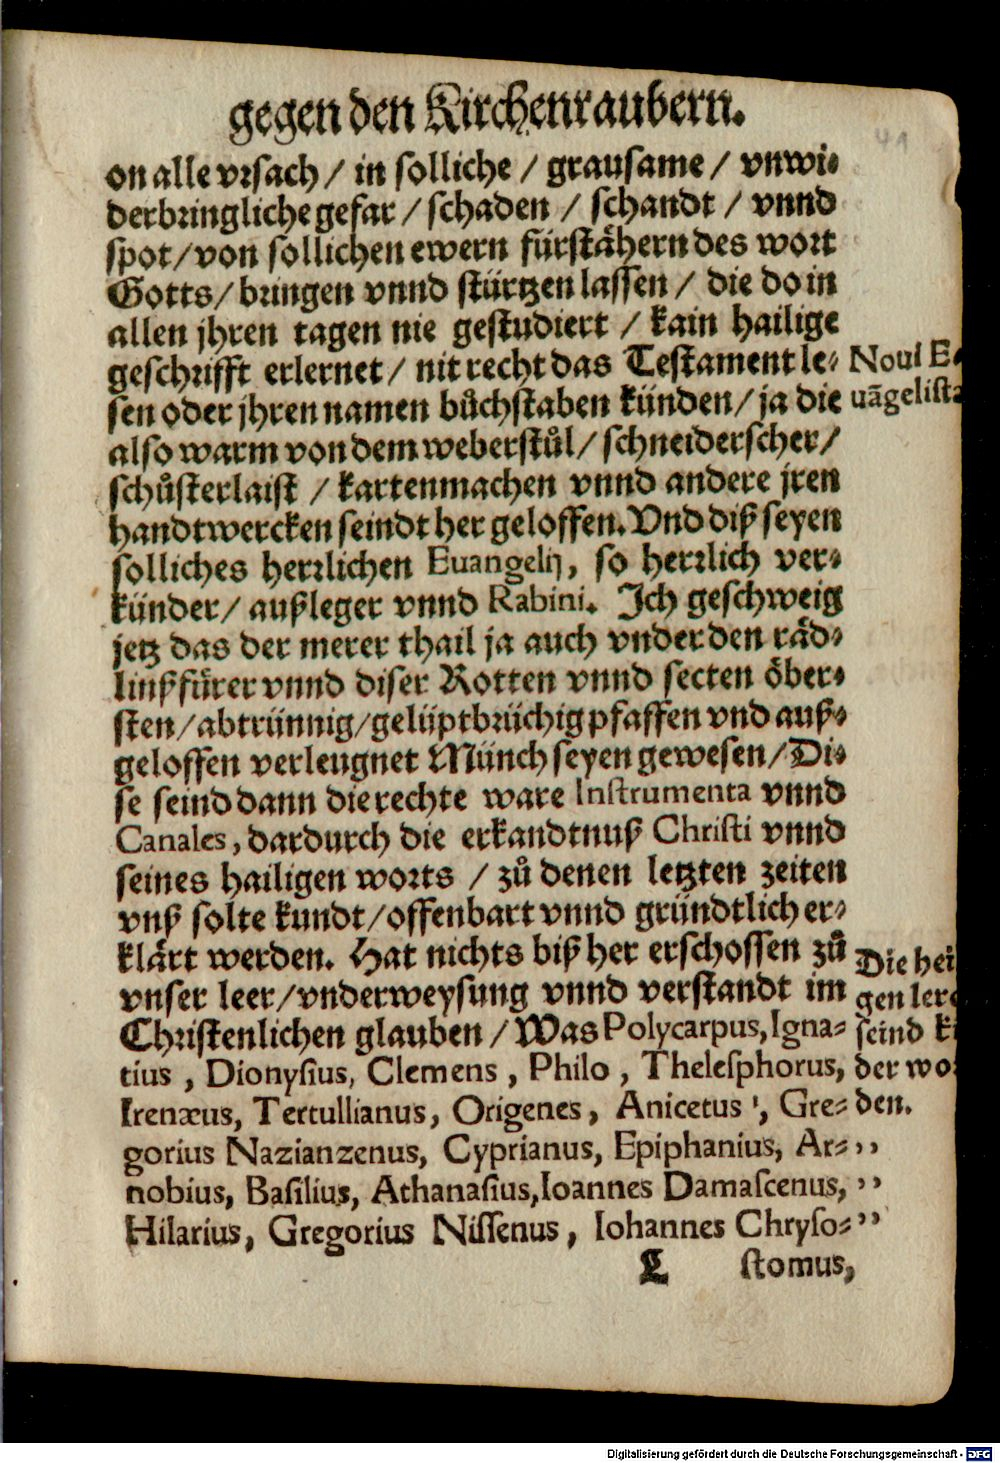 gegen den Kirchenraubern.
41
on alle vrsach / in solliche / grausame / vnwi-
derbringliche gefar / schaden / schandt / vnnd
spot / von sollichen ewern fürstähern des wort
Gotts / bringen vnnd stürtzen lassen / die do in
allen jhren tagen nie gestudiert / kain hailige
geschrifft erlernet / nit recht das Testament le-
sen oder jhren namen bůchstaben künden / ja die
also warm von dem weberstůl / schneiderscher /
schůsterlaist / kartenmachen vnnd andere jren
handtwercken seindt her geloffen. Vnd diß seyen
solliches herrlichen Euangelij, so herrlich ver-
künder / außleger vnnd Rabini. Ich geschweig
jetz das der merer thail ja auch vnder den räd-
linßfürer vnnd diser Rotten vnnd secten öber-
sten / abtrünnig / gelüptbrüchig pfaffen vnd auß-
geloffen verleugnet Münch seyen gewesen / Di-
se seind dann die rechte ware Instrumenta vnnd
Canales, dardurch die erkandtnuß Christi vnnd
seines hailigen worts / zů denen letzten zeiten
vnß solte kundt / offenbart vnnd gründtlich er-
klärt werden. Hat nichts biß her erschossen zů
vnser leer / vnderweysung vnnd verstandt im
Christenlichen glauben / Was Polycarpus, Igna-
tius, Dionysius, Clemens, Philo, Thelesphorus,
Irenæus, Tertullianus, Origenes, Anicetus, Gre-
gorius Nazianzenus, Cyprianus, Epiphanius, Ar-
nobius, Basilius, Athanasius, Ioannes Damascenus,
Hilarius, Gregorius Nissenus, Iohannes Chryso-
L stomus,
Noui E-
uãgelist
Die hei
gen ler
seind
der wo
den.
,,
,,
,,
Digitalisierung gefördert durch die Deutsche Forschungsgemeinschaft - DFG